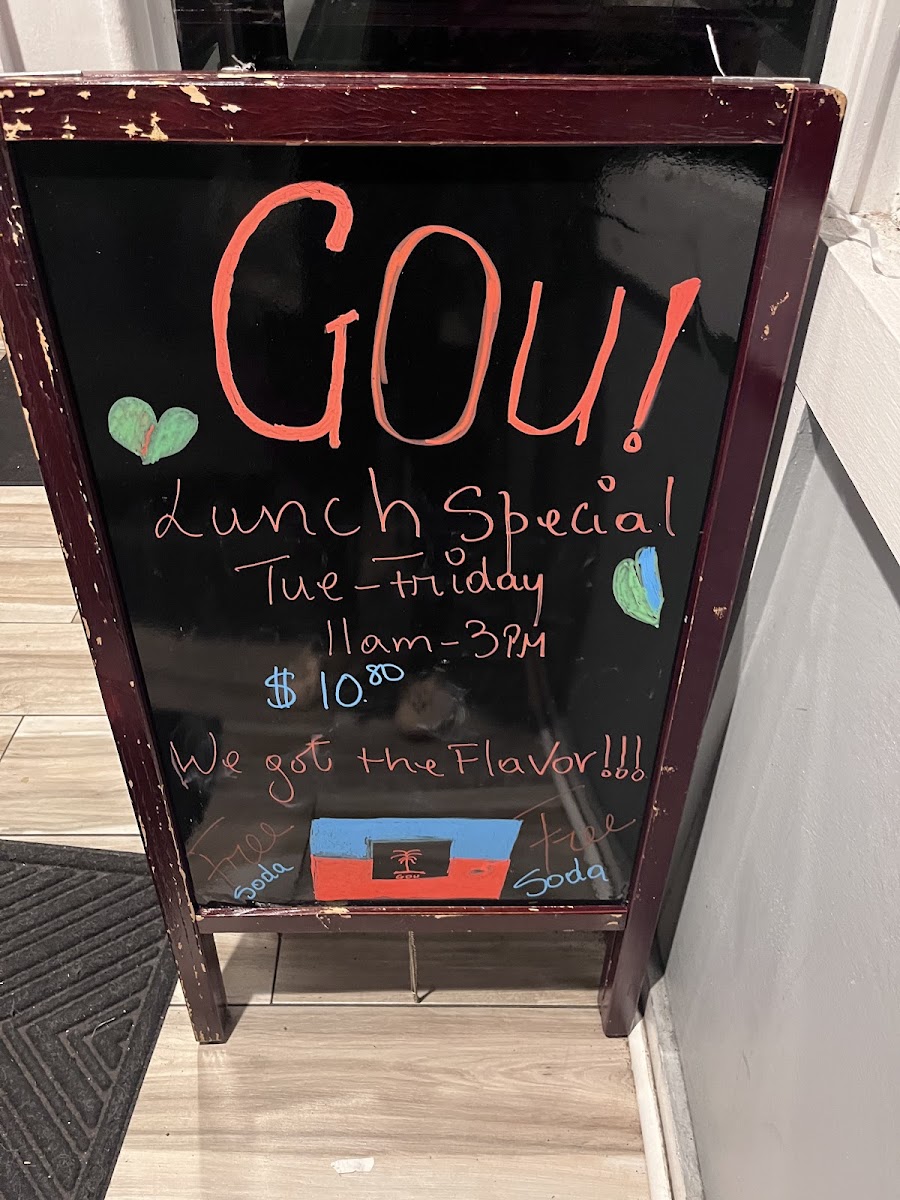 GOU!
Lunch Special
Tue-Friday
11am-3PM
$10.80
We got the Flavor!!!
Free
Soda
GOU
Free
Soda